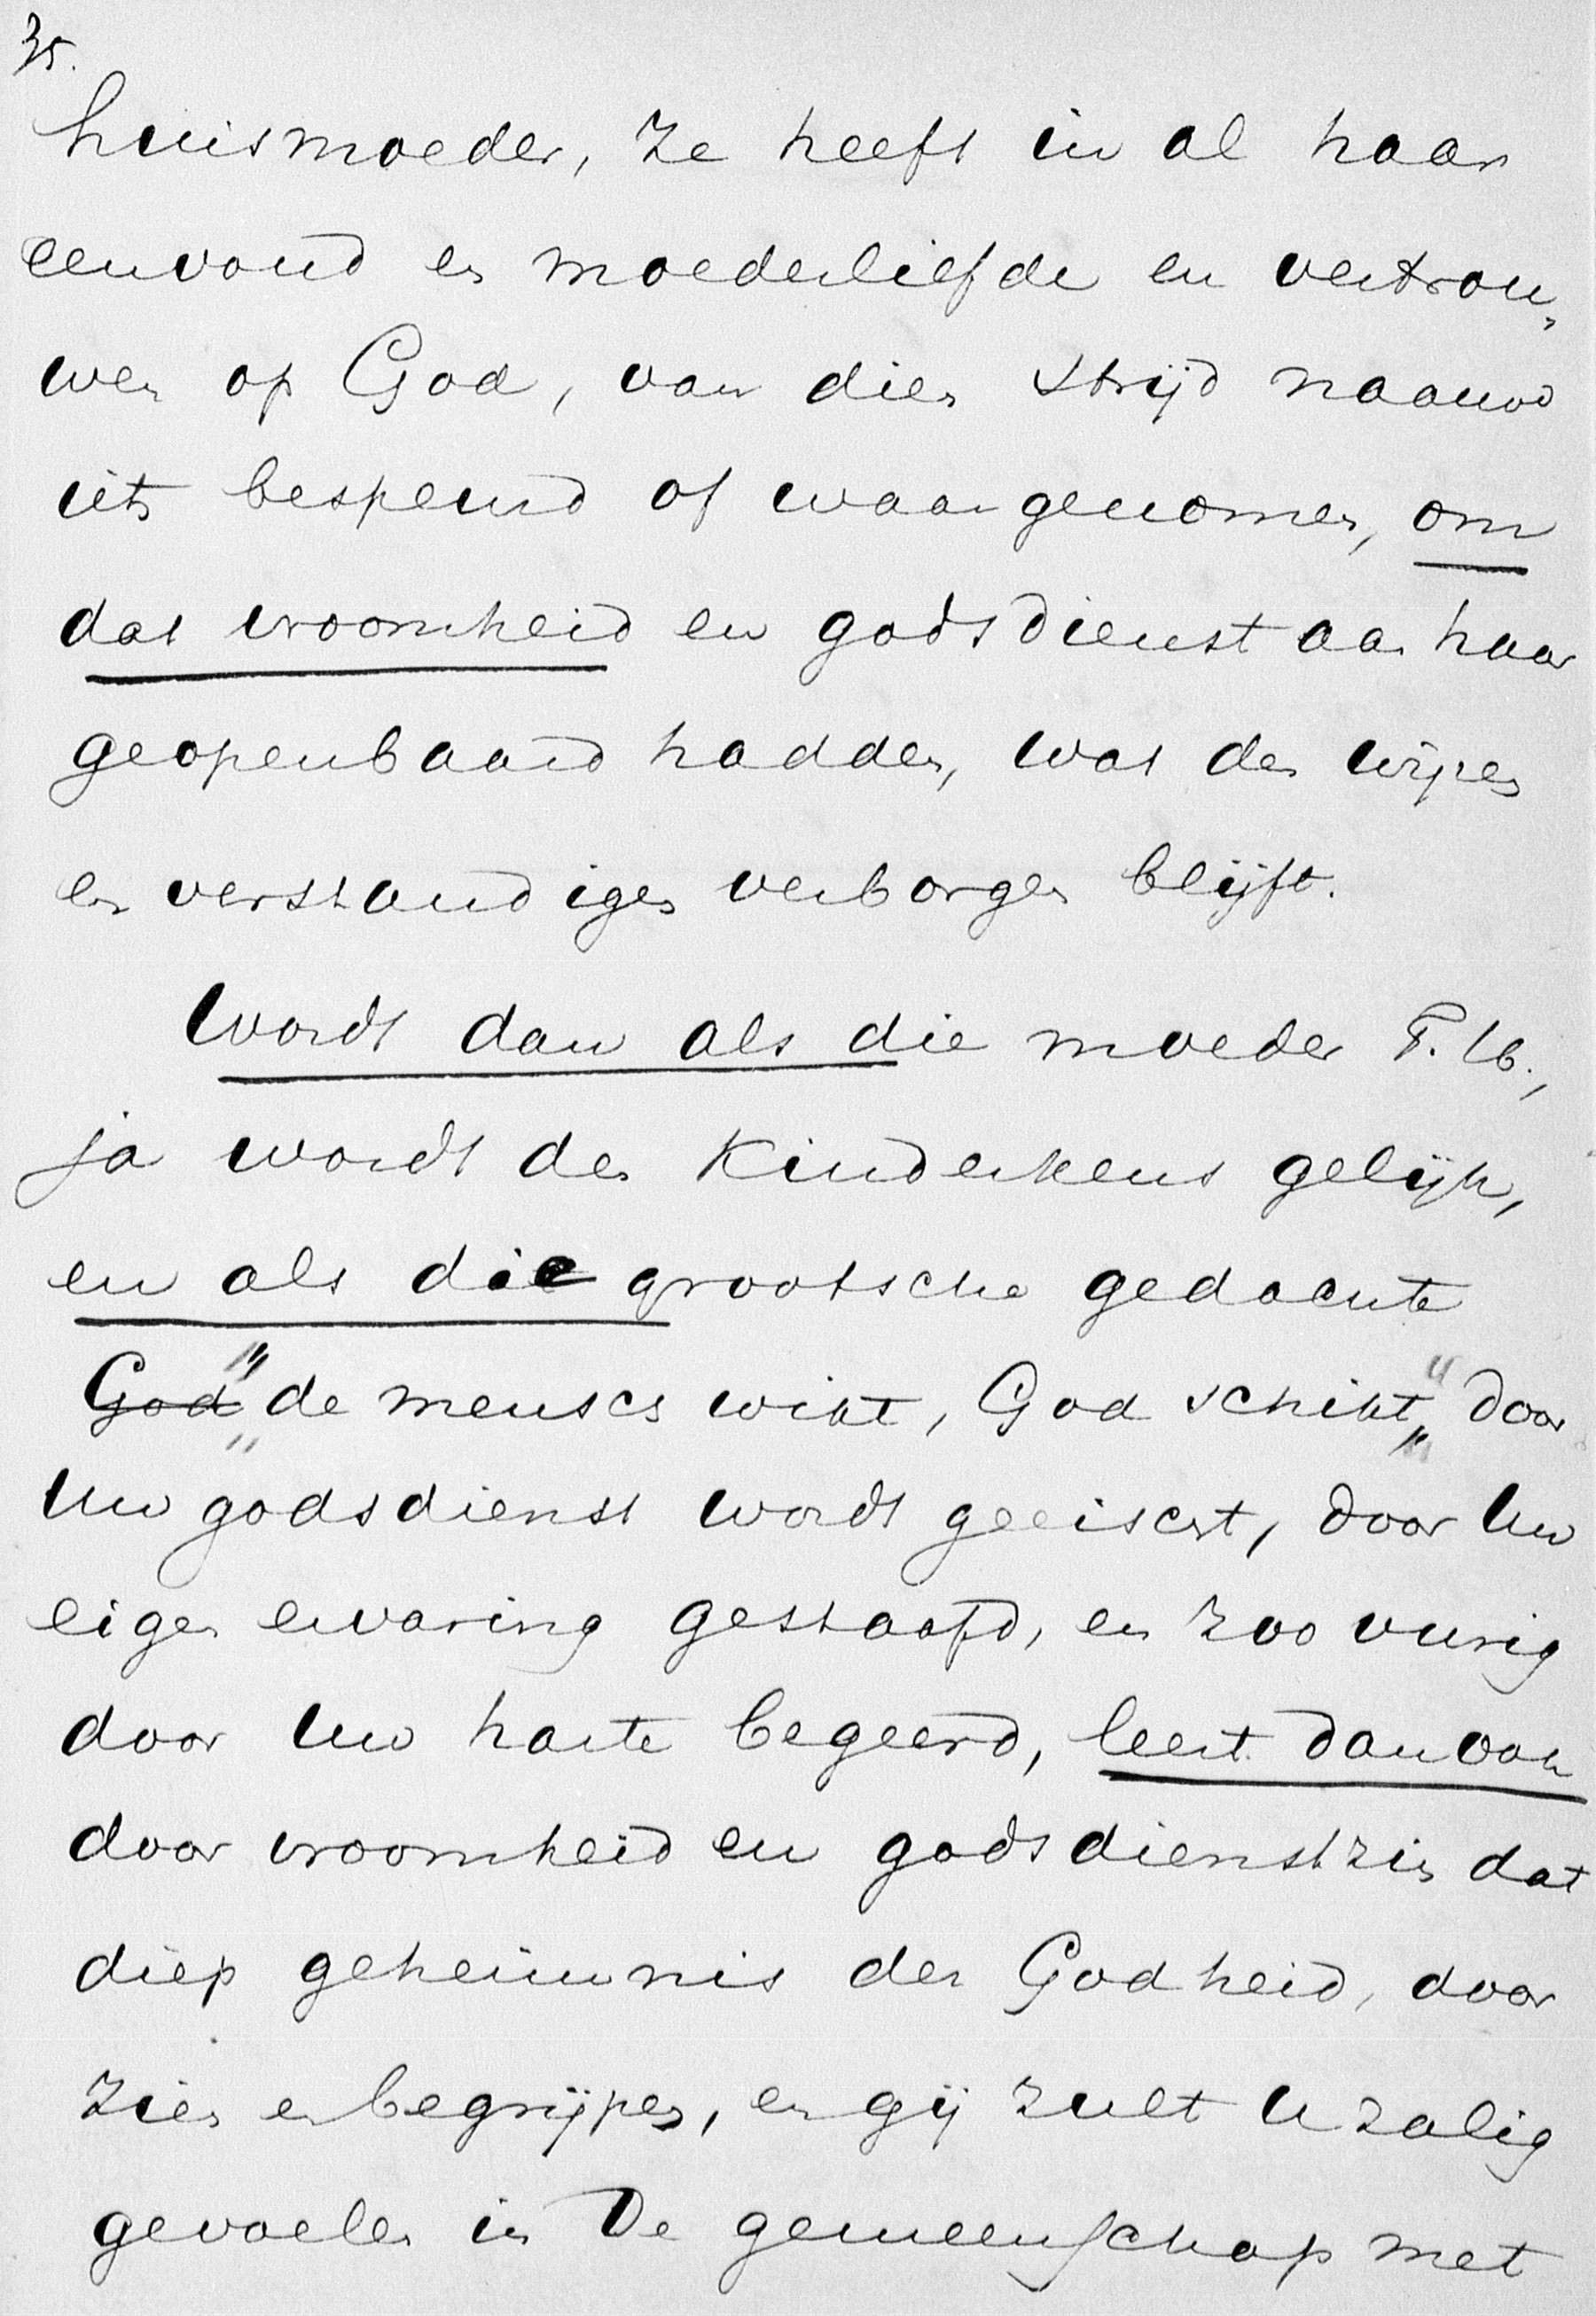 35.
huismoeder, ze heeft in al haar
eenvoud en moederliefde en vertrou„
wen op God, van dien strijd naauw
iets bespeurd of waargenomen, om
dat vroomheid en godsdienst aan haar
geopenbaard hadden, wat den wijzen
en verstandigen verborgen blijft.
Wordt dan als die moeder T.
ja wordt den kinderkens gelijk,
en als die grootsche gedachte
God "de mensch wikt, God schikt" door
Uw godsdienst wordt geeischt, door Uw
eigen ervaring gestaafd, en zoo vurig
door Uw harte begeerd, leert dan ook
door vroomheid en godsdienstzin dat
diep geheimnis der Godheid, door
zien en begrijpen, en gij zult U zalig
gevoelen in De gemeenschap met